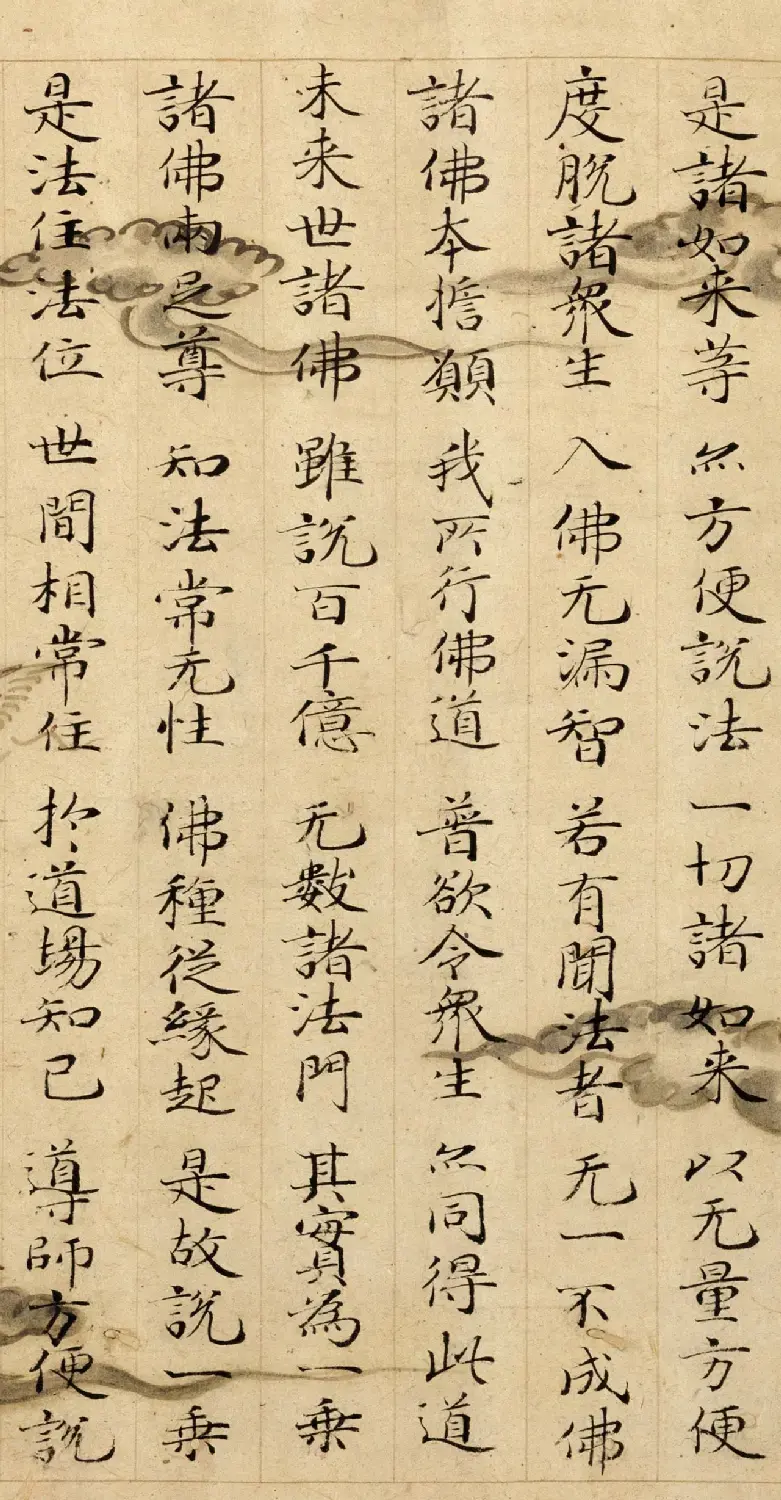 是諸如来等 亦方便説法 一切諸如来 以无量方便
度脱諸衆生 入佛无漏智 若有聞法者 无一不成佛
諸佛本擔願 我所行佛道 普欲令衆生 亦同得此道
未来世諸佛 雖説百千億 无數諸法門 其實為一乗
諸佛兩足尊 知法常无性 佛種従縁起 是故説一乗
是法住法位 世間相常住 於道場知已 導師方便説